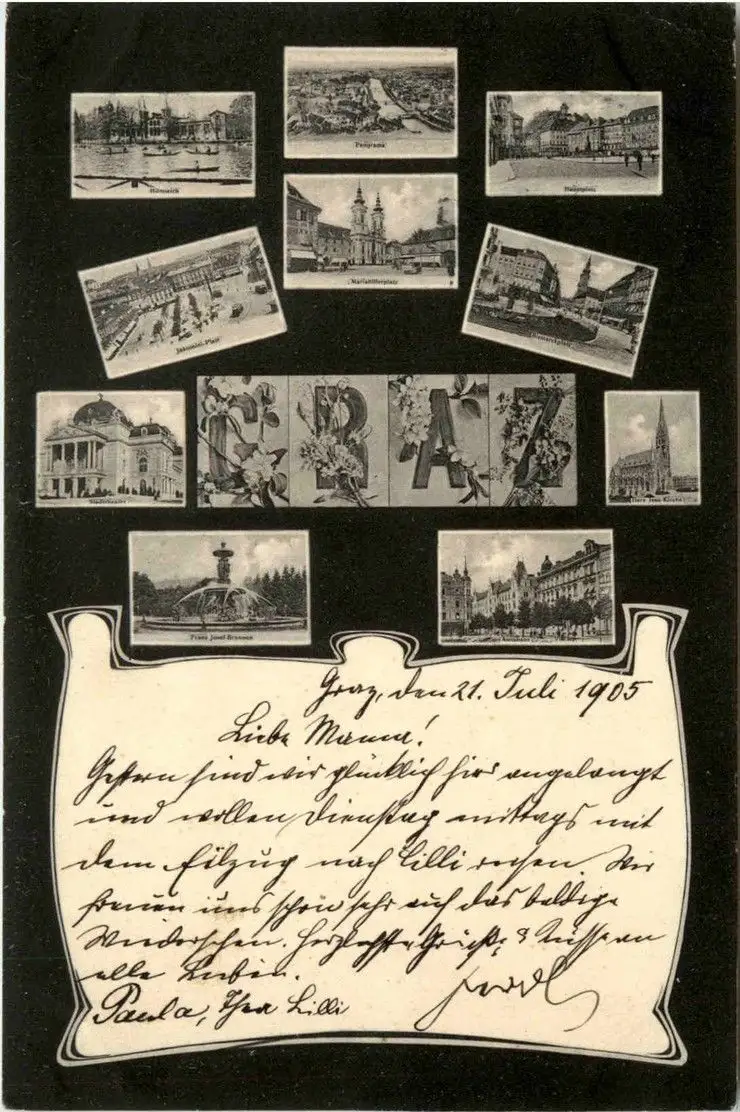 Panorama
Hilmteich
Hauptplatz
Mariahilferplatz
Jakomini-Platz
Bismarckplatz
GRAZ
Stadttheater
Herz Jesu-Kirche
Franz Josef-Brunnen
Graz, den 21. Juli 1905
Liebe Mama!
Gestern sind wir glücklich hier angelangt
und wollen Dienstag mittags mit
dem Eilzug nach Cilli reisen. Wir
freuen uns schon sehr auf das baldige
Wiedersehen. Herzlichste Grüße & Küsse an
alle Lieben.
Paula, Lilli